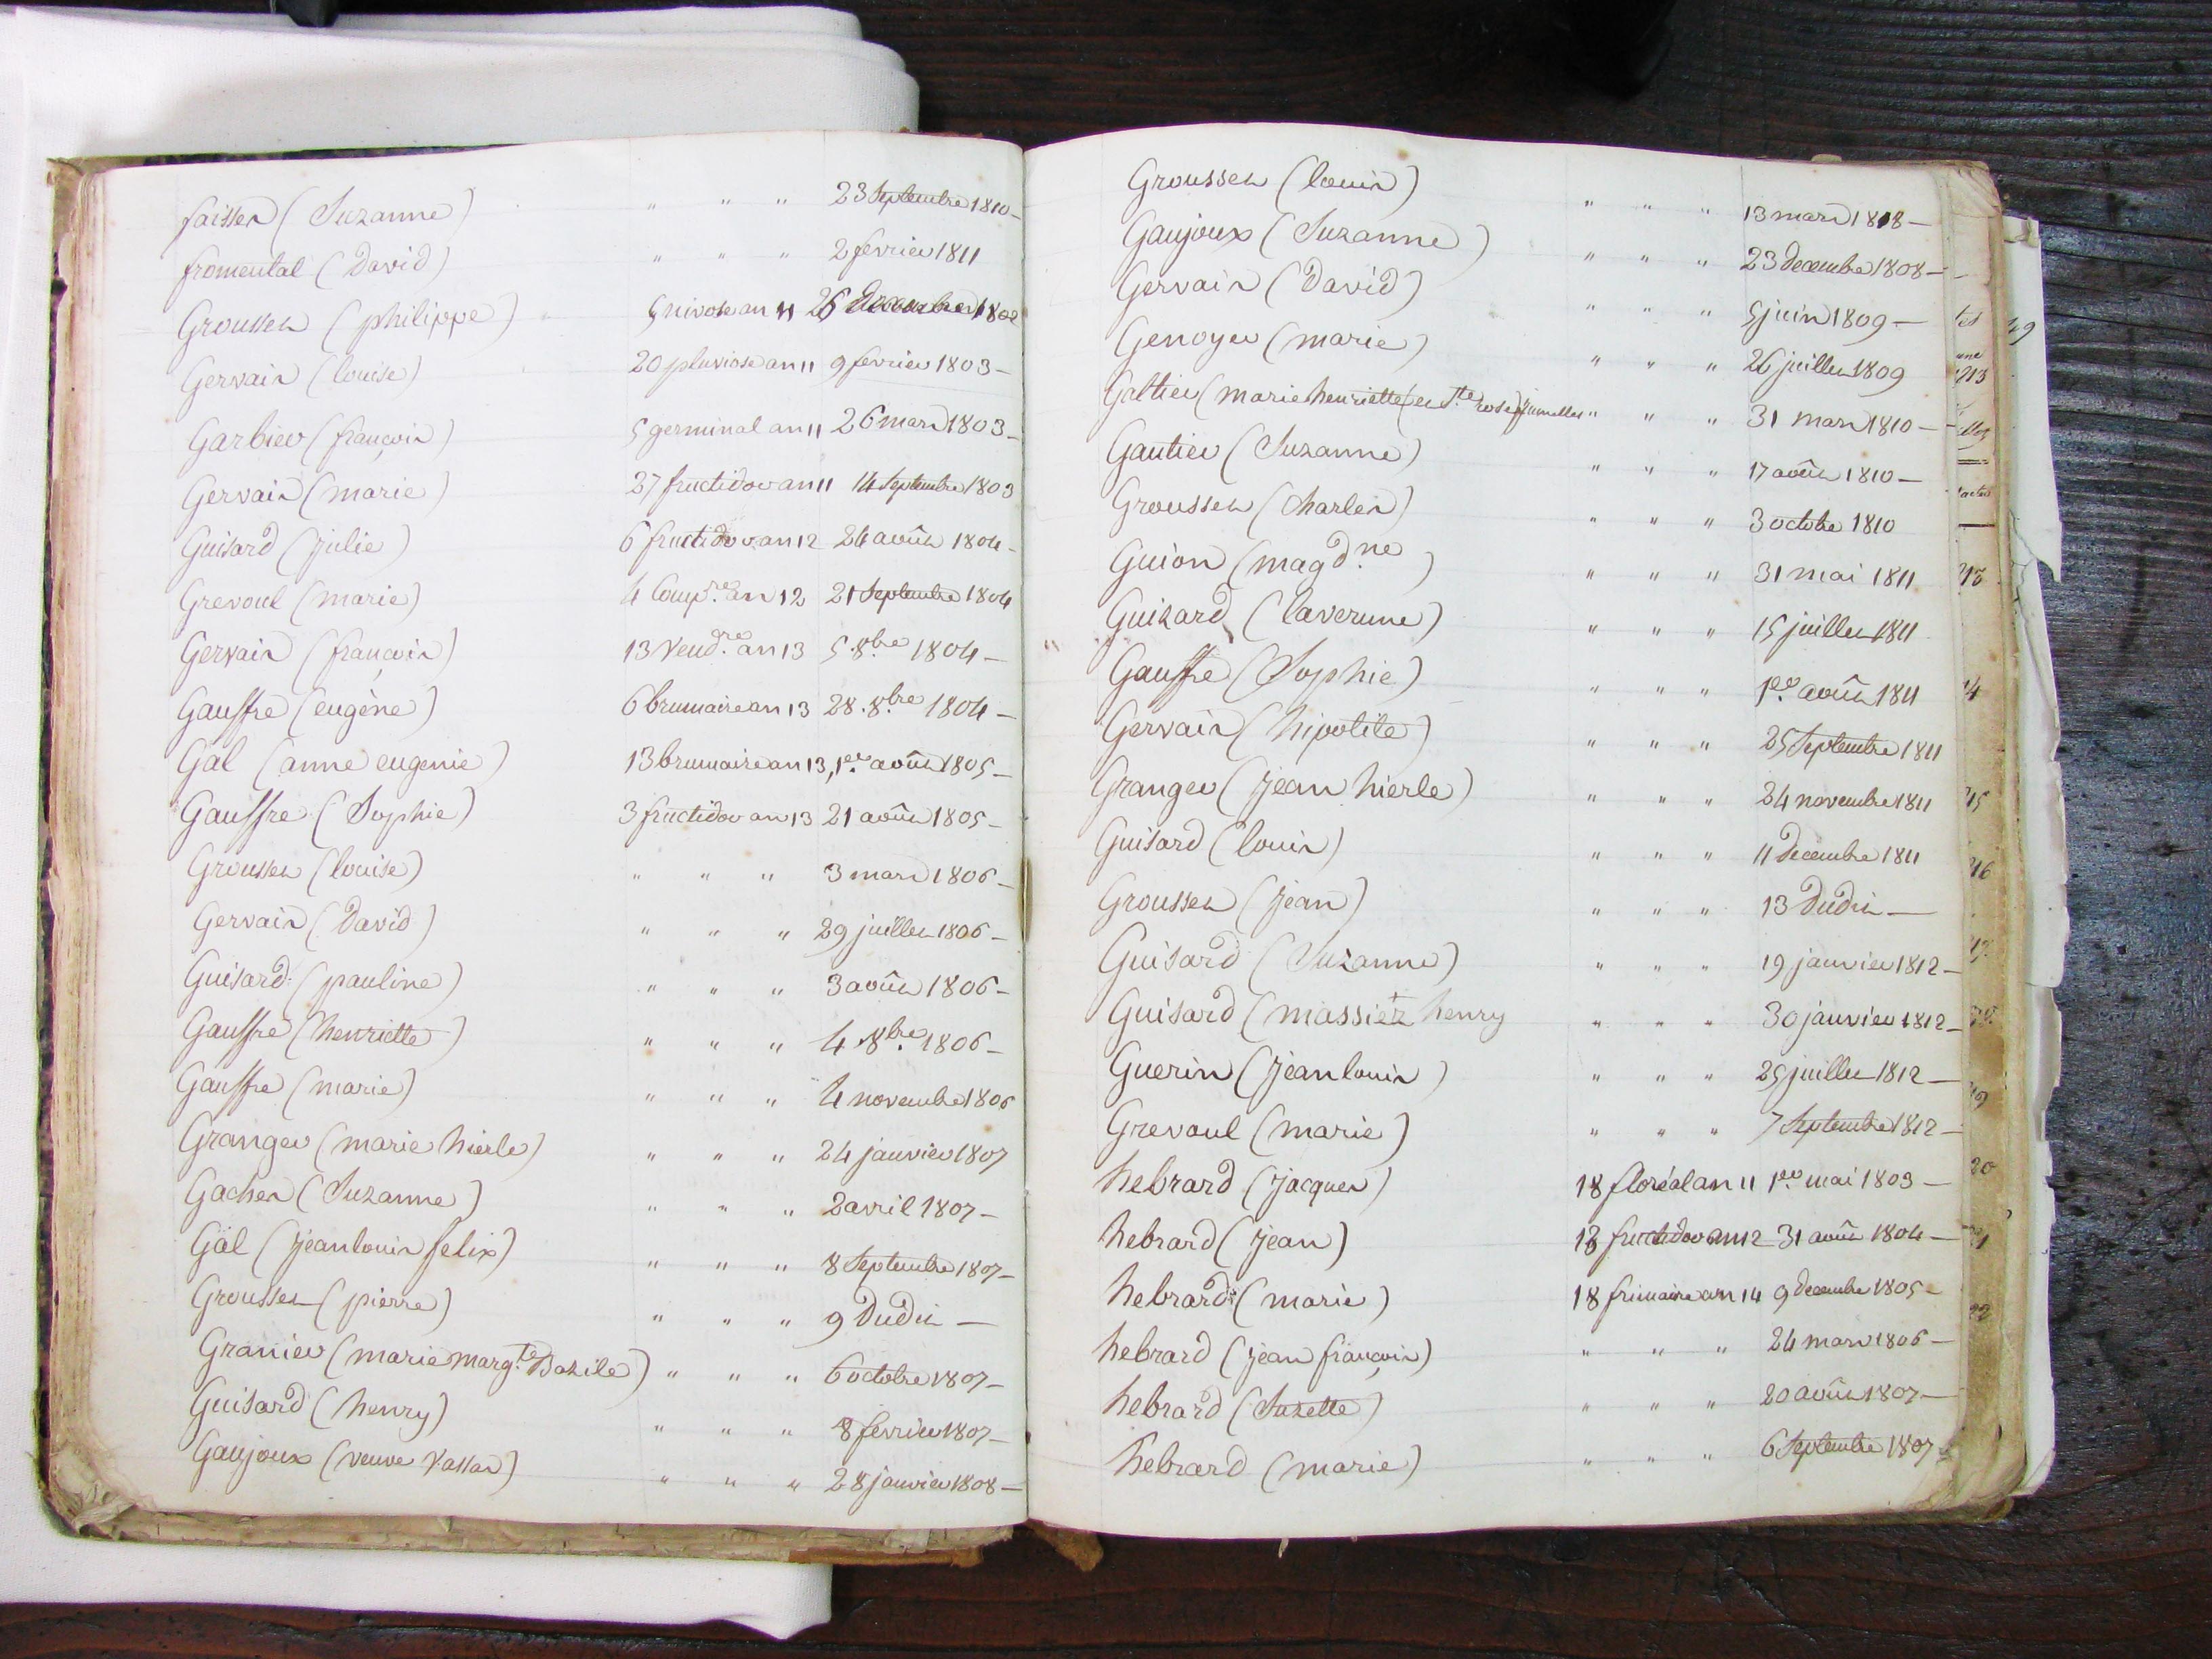 faisses (Suzanne) " " " 23 Septembre 1810 —
fromental (David) " " " 2 fevrier 1811
Grousset (philippe) 5 nivose an 11 26 decembre 1802
Gervais (louise) 20 pluviose an 11 9 fevrier 1803 —
Garbier (françois) 5 germinal an 11 26 mars 1803 —
Gervais (marie) 27 fructidor an 11 14 Septembre 1803
Guisard (julie) 6 fructidor an 12 24 août 1804 —
Grevoul (marie) 4 Comp.re an 12 21 Septembre 1804
Gervais (françois) 13 Vend.re an 13 5. 8bre 1804 —
Gauffre (eugène) 6 brumaire an 13 28. 8bre 1804 —
Gal (anne eugenie) 13 brumaire an 13, 1er. août 1805 —
Gauffre (Sophie) 3 fructidor an 13 21 août 1805 —
Grousset (louise) " " " 3 mars 1806 —
Gervais (David) " " " 29 juillet 1806 —
Guisard (pauline) " " " 3 août 1806 —
Gauffre (henriette) " " " 4. 8bre. 1806 —
Gauffre (marie) " " " 4 novembre 1806
Granger (marie hierle) " " " 24 janvier 1807
Gaches (Suzanne) " " " 2 avril 1807 —
Gal (jean louis felix) " " " 8 Septembre 1807 —
Grousset (pierre) " " " 9 Dudit —
Granier (marie marg.te Bazile) " " " 6 octobre 1807 —
Guisard (henry) " " " 8 fevrier 1807 —
Gaujoux (veuve Vassas) " " " 28 janvier 1808 —
Grousset (louis) " " " 13 mars 1808 —
Gaujoux (Suzanne) " " " 23 decembre 1808 —
Gervais (David) " " " 5 juin 1809 —
Genoyer (marie) " " " 26 juillet 1809
Galtier (marie henriette (et Ste rose) jumelles " " " 31 mars 1810 —
Gautier (Suzanne) " " " 17 août 1810 —
Grousset (Charles) " " " 3 octobre 1810
Guion (magd.ne) " " " 31 mai 1811
Guizard (laverune) " " " 15 juillet 1811
Gauffre (Sophie) " " " 1er. août 1811
Gervais (hipolite) " " " 25 Septembre 1811
Granger (jean hierle) " " " 24 novembre 1811
Guisard (louis) " " " 11 Decembre 1811
Grousset (jean) " " " 13 Dudit —
Guisard (Suzanne) " " " 19 janvier 1812 —
Guisard (massiez henry " " " 30 janvier 1812 —
Guerin (jean louis) " " " 25 juillet 1812 —
Grevoul (marie) " " " 7 Septembre 1812 —
hebrard (jacques) 18 floréal an 11 1er mai 1803 —
hebrard (jean) 13 fructidor an 12 31 août 1804 —
hebrard (marie) 18 frimaire an 14 9 decembre 1805 —
hebrard (jean françois) " " " 24 mars 1806 —
hebrard (Suzette) " " " 20 août 1807 —
hebrard (marie) " " " 6 Septembre 1807